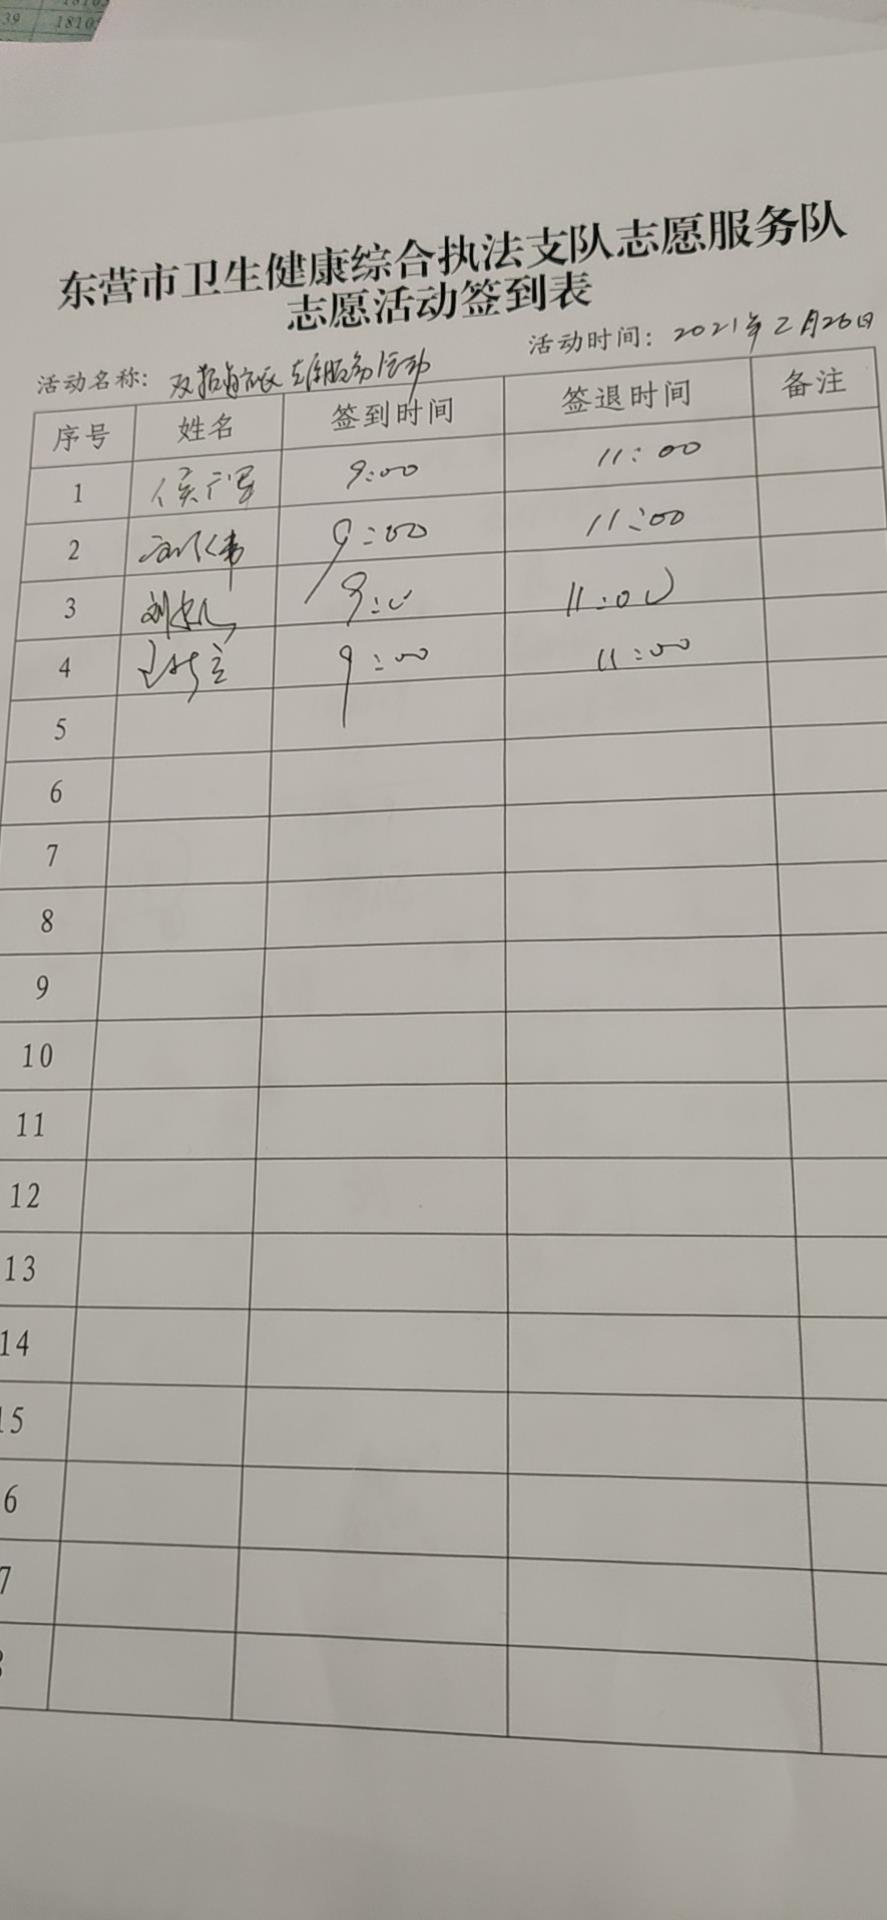 39 1810
东营市卫生健康综合执法支队志愿服务队
志愿活动签到表
活动名称: 志愿服务活动 活动时间: 2021年2月26日
序号 姓名 签到时间 签退时间 备注
1 9:00 11:00
2 9:00 11:00
3 9:00 11:00
4 9:00 11:00
5
6
7
8
9
10
11
12
13
14
15
6
7